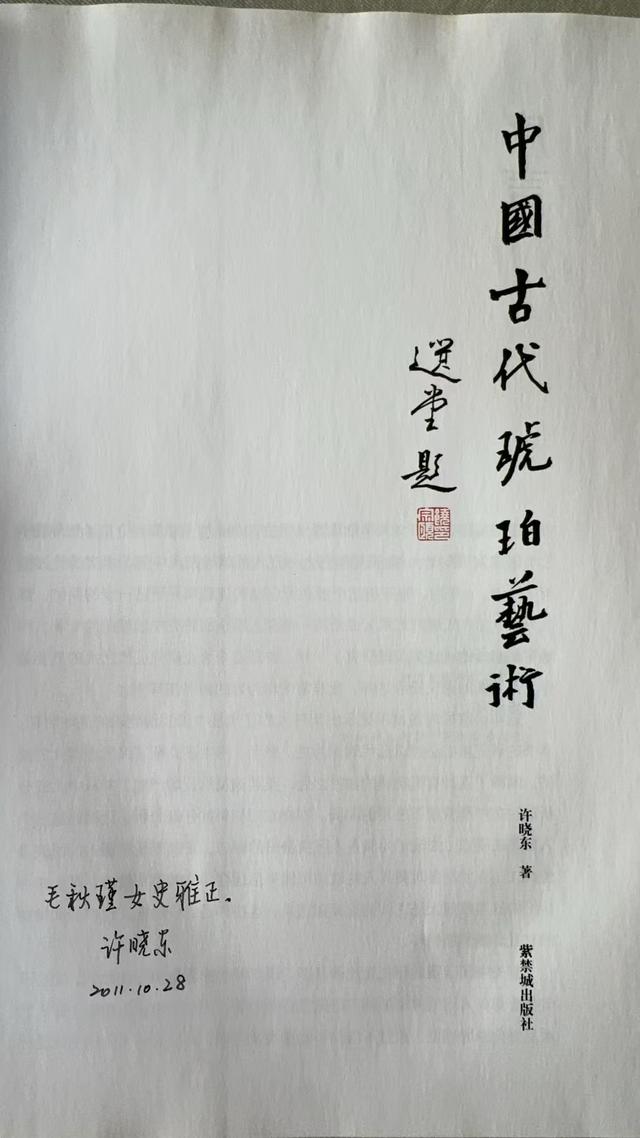 中國古代琥珀藝術
選堂題
许晓东 著
紫禁城出版社
毛秋瑾女史雅正。
许晓东
2011.10.28